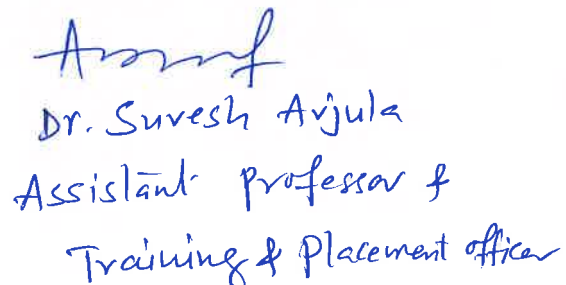 Dr. Suresh Arjula
Assistant professor &
Training & Placement officer